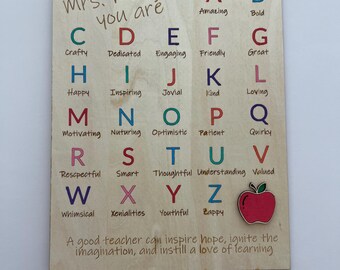 Mrs.
you are
A B
Amazing Bold
C D E F G
Crafty Dedicated Engaging Friendly Great
H I J K L
Happy Inspiring Jovial Kind Loving
M N O P Q
Motivating Nuturing Optimistic Patient Quirky
R S T U V
Respectful Smart Thoughtful Understanding Valued
W X Y Z
Whimsical Xenialities Youthful Zappy
A good teacher can inspire hope, ignite the
imagination, and instill a love of learning